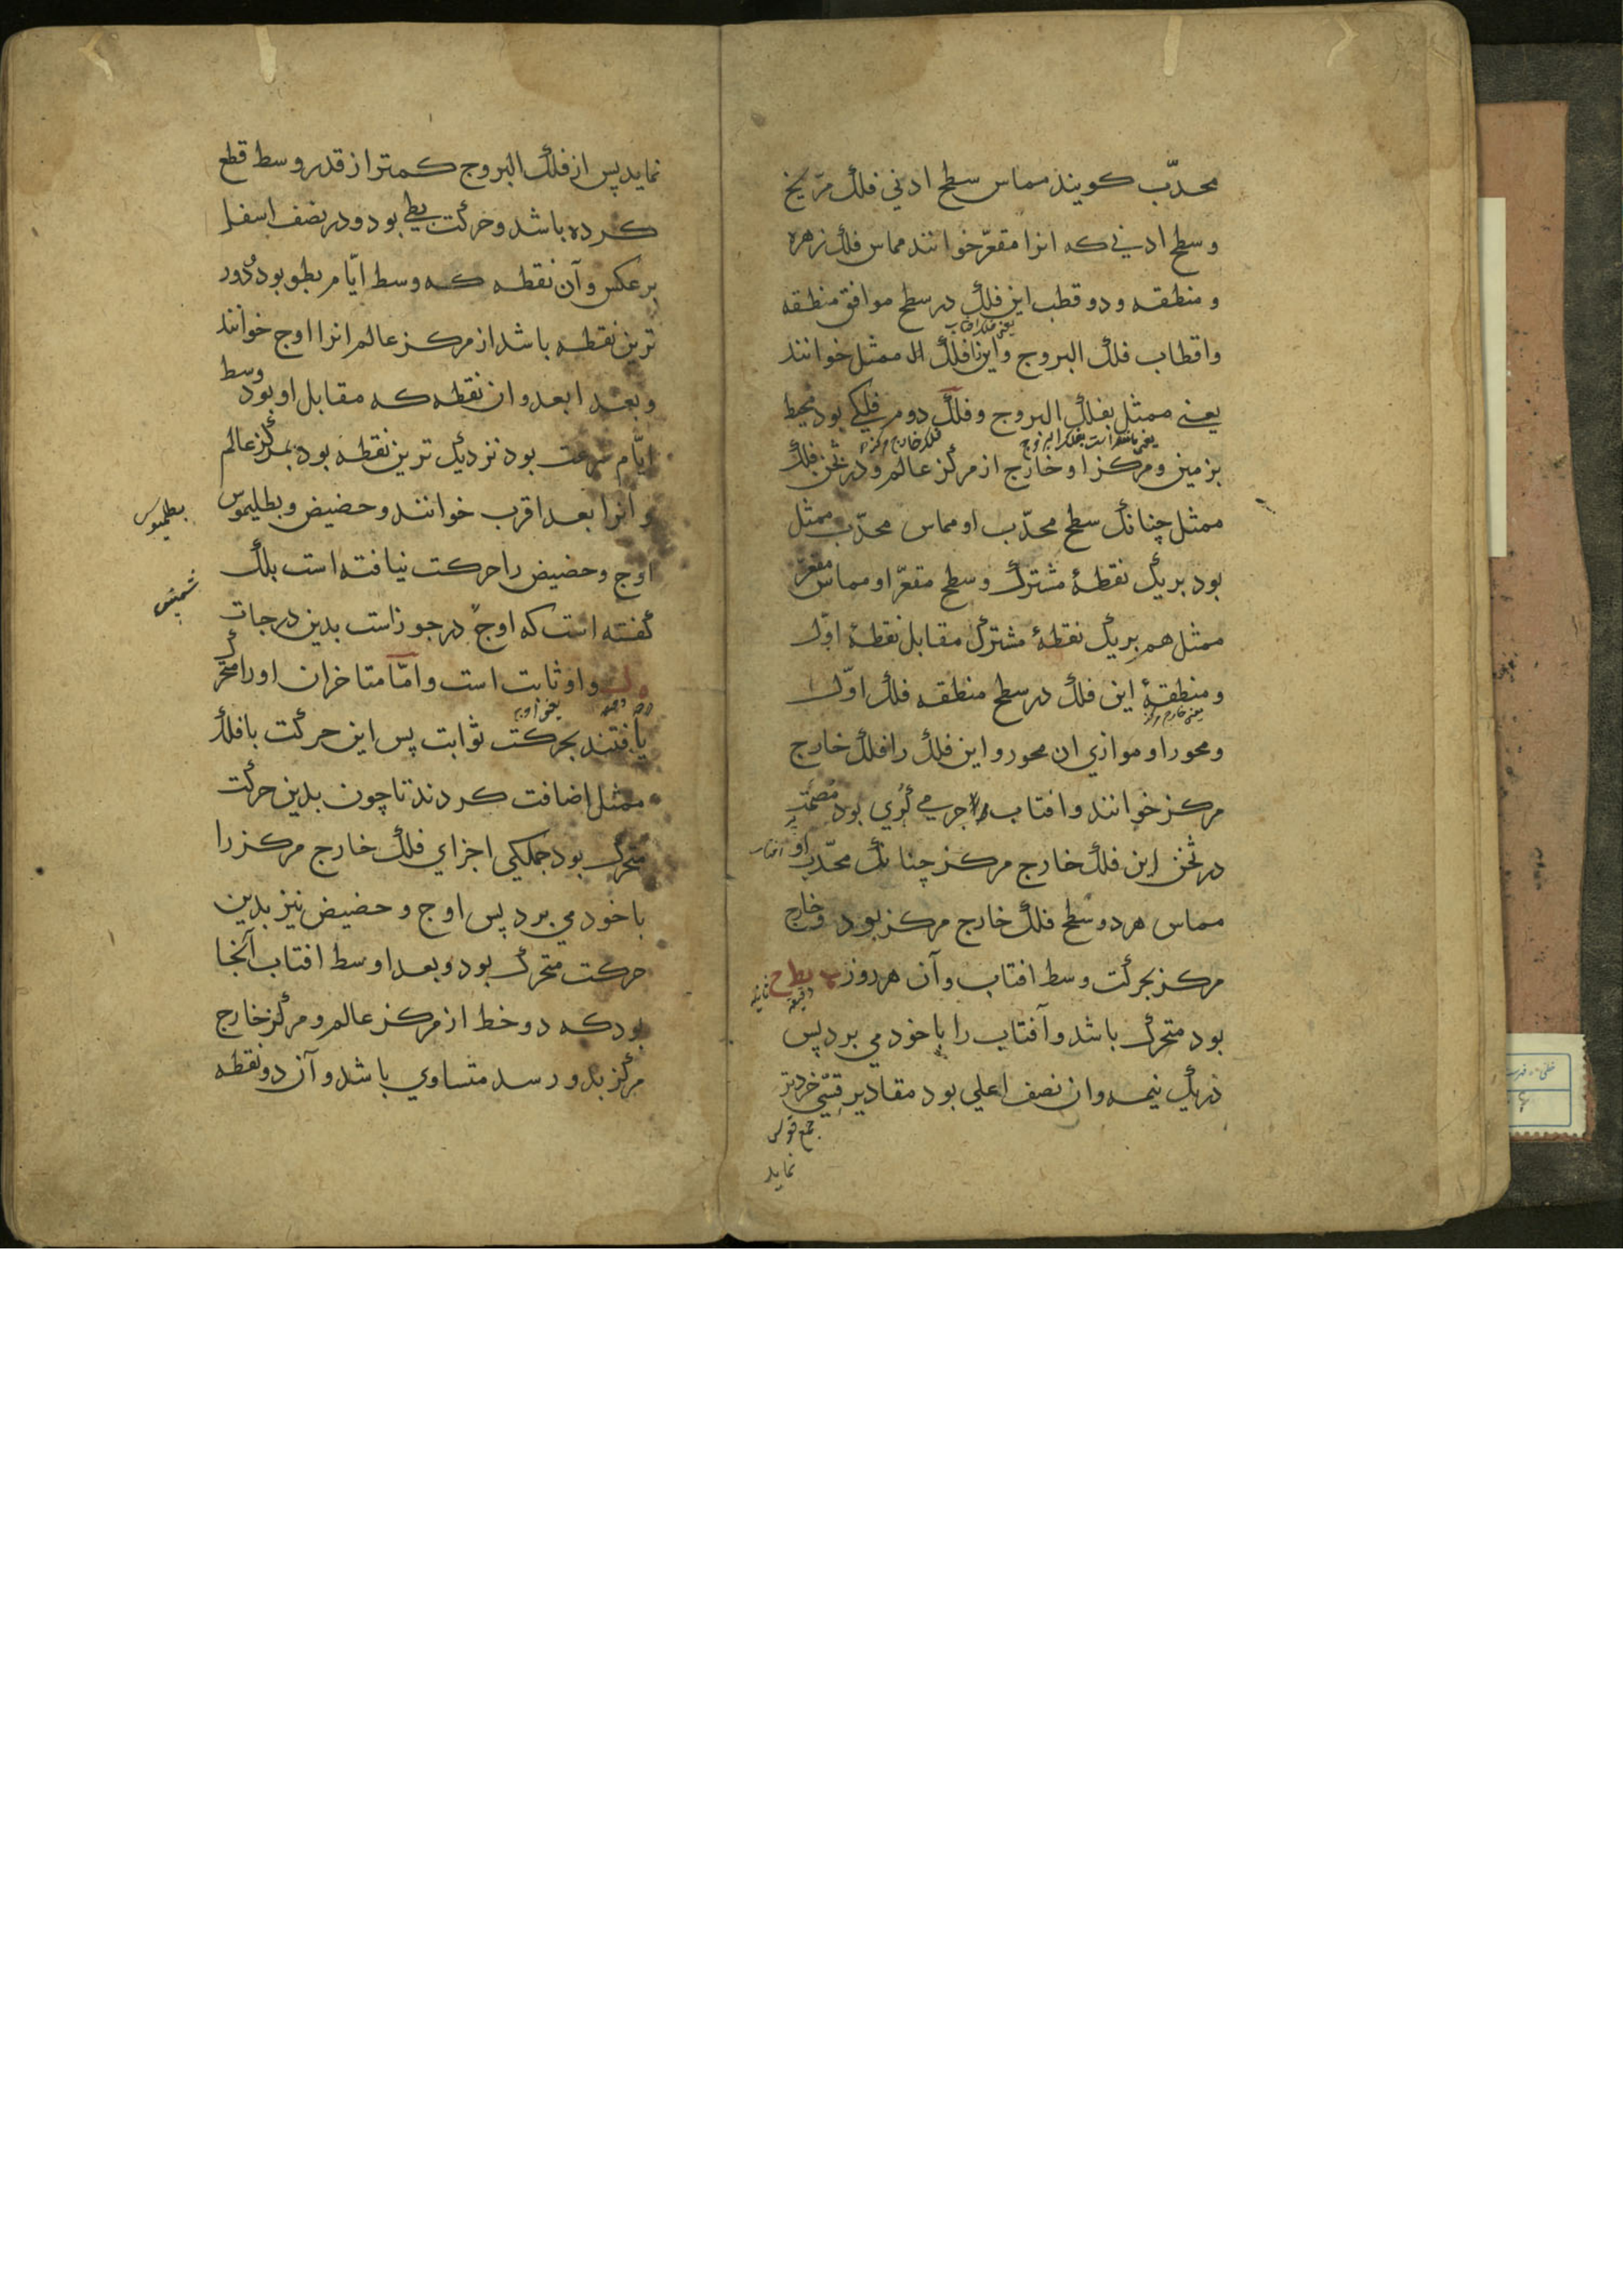 محدّب کویند مماس سطح ادنی فلک مرّیخ
و سطح ادنی که انرا مقعّر خوانند مماس فلک زهره
و منطقه و دو قطب این فلک در سطح موافق منطقه
یعنی فلک افتاب
واقطاب فلک البروج واین فلک را ممثل خوانند
یعنی ممثل بفلک البروج وفلک دوم فلکی بود محیط
یعنی مانند است بفلک البروج فلک خارج مرکز
بزمین ومرکز او خارج از مرکز عالم و در ثخن فلک
ممثل چنانک سطح محدّب او مماس محدّب ممثل
بود بر یک نقطهٔ مشترک وسطح مقعّر او مماس مقعّر
ممثل هم بر یک نقطهٔ مشترک مقابل نقطهٔ اوّل
ومنطقهٔ این فلک در سطح منطقه فلک اوّل
یعنی خارج مرکز
ومحور او موازی ان محور و این فلک را فلک خارج
مرکز خوانند وافتاب جرمی کُری بود مُصمَت
در ثخن این فلک خارج مرکز چنانک محدّب او
افتاب
مماس هر دو سطح فلک خارج مرکز بود وخارج
مرکز بحرکت وسط افتاب وآن هر روز نط ح
دقیقه ثانیه
بود متحرک باشد وآفتاب را با خود می برد پس
در یک نیمه وان نصف اعلی بود مقادیر قِسّی خردتر
جمع قوس
نماید
نماید پس از فلک البروج کمتر از قدر وسط قطع
کرده باشد وحرکت بطی بود ودر نصف اسفل
بر عکس وآن نقطه که وسط ایّام بطو بود دُور
ترین نقطه باشد از مرکز عالم انرا اوج خوانند
وبعد ابعد وان نقطه که مقابل او بود وسط
ایّام سرعت بود نزدیک ترین نقطه بود بمرکز عالم
و انرا بعد اقرب خوانند وحضیض وبطلیموس
بطلمیوس
اوج وحضیض را حرکت نیافته است بلک
گفته است که اوج در جوزاست بدین درجات
واو ثابت است وامّا متاخران او را متحرک
درجه دقیقه یعنی اوج
یافتند بحرکت ثوابت پس این حرکت با فلک
ممثل اضافت کردند تا چون بدین حرکت
متحرک بود جملکی اجزای فلک خارج مرکز را
با خود می برد پس اوج وحضیض نیز بدین
حرکت متحرک بود وبعد اوسط افتاب آنجا
بود که دو خط از مرکز عالم و مرکز خارج
مرکز بدو رسد متساوی باشد وآن دو نقطه